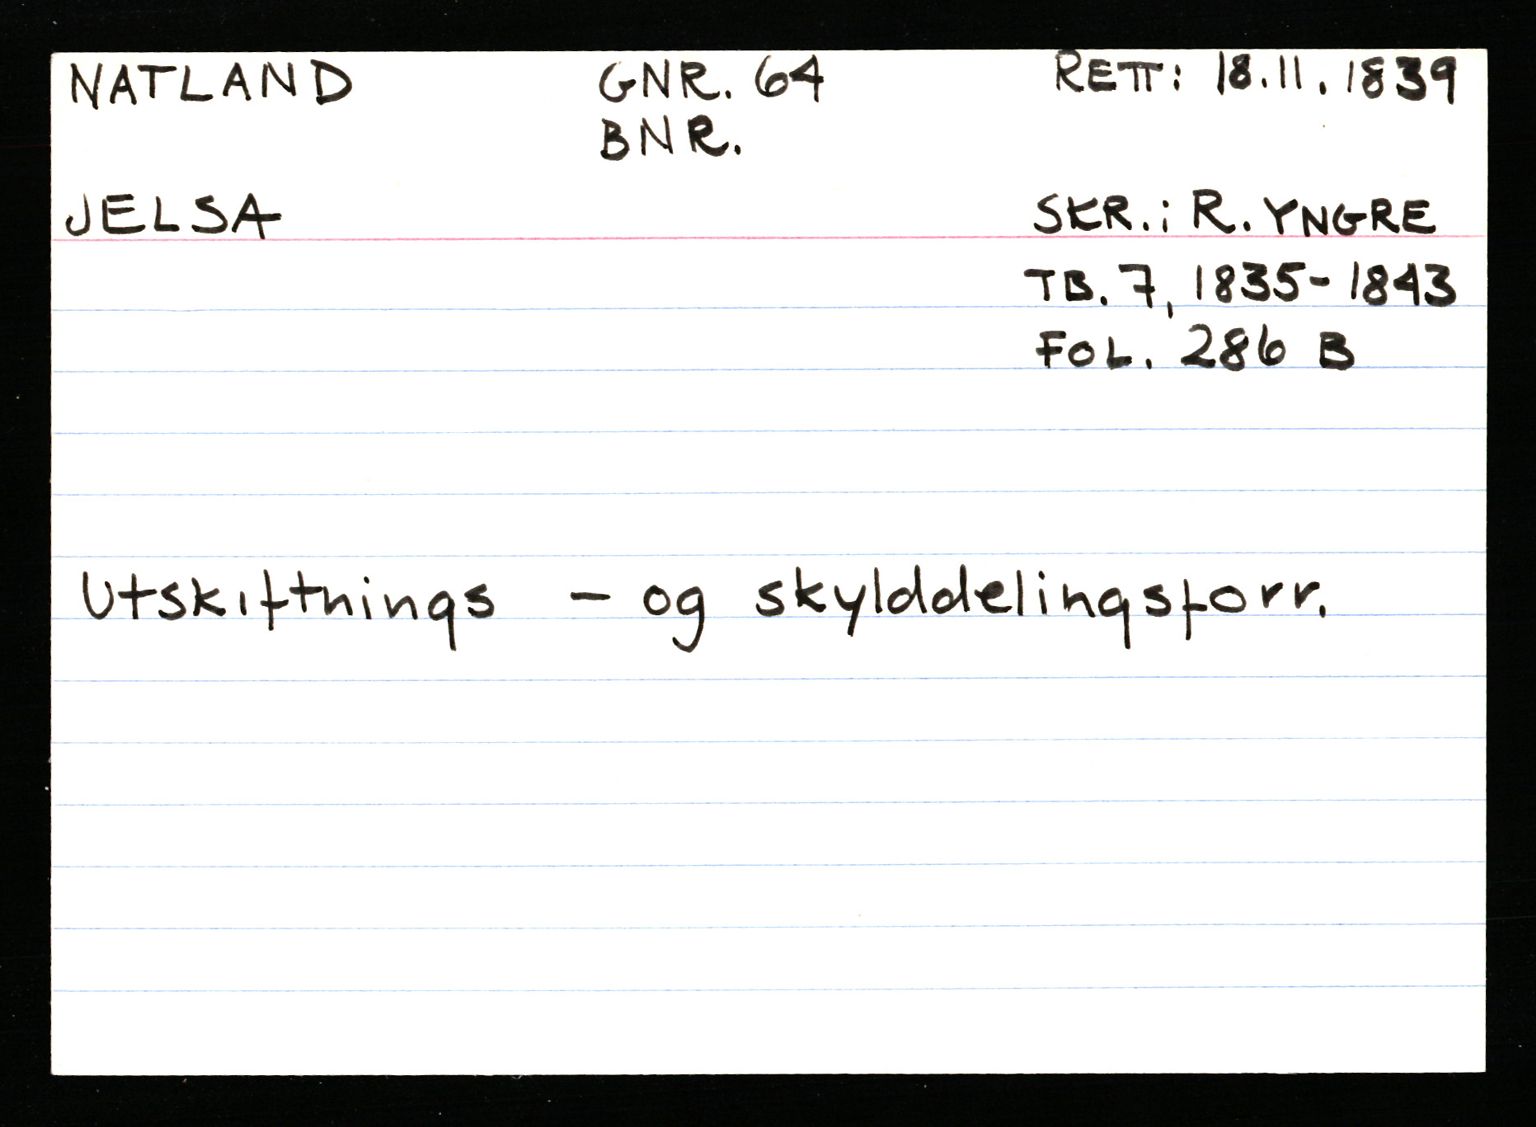 NATLAND GNR. 64 RETT: 18.11.1839
BNR.
JELSA SKR. i R. YNGRE
TB. 7, 1835-1843
FOL. 286 B
Utskiftnings - og skylddelingsforr.